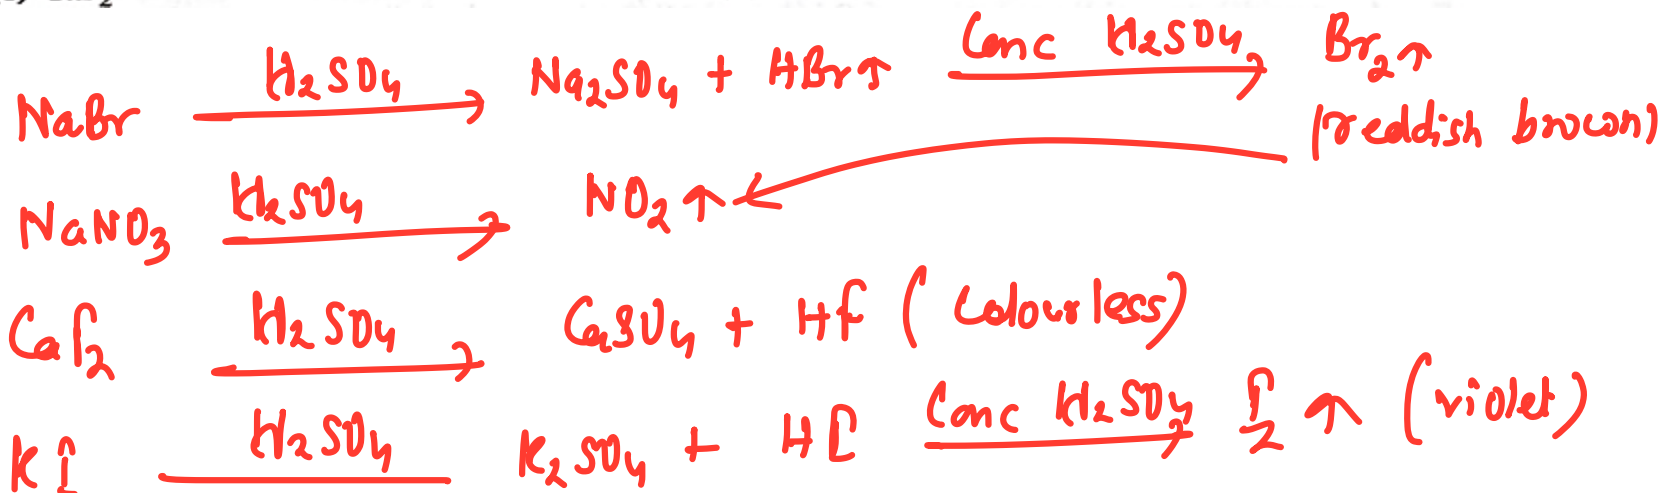 NaBr H₂SO₄ → Na₂SO₄ + HBr↑ Conc H₂SO₄ → Br₂↑
(reddish brown)
NaNO₃ H₂SO₄ → NO₂↑ ←
CaF₂ H₂SO₄ → CaSO₄ + HF (Colourless)
KI H₂SO₄ K₂SO₄ + HI Conc H₂SO₄ → I₂↑ (violet)